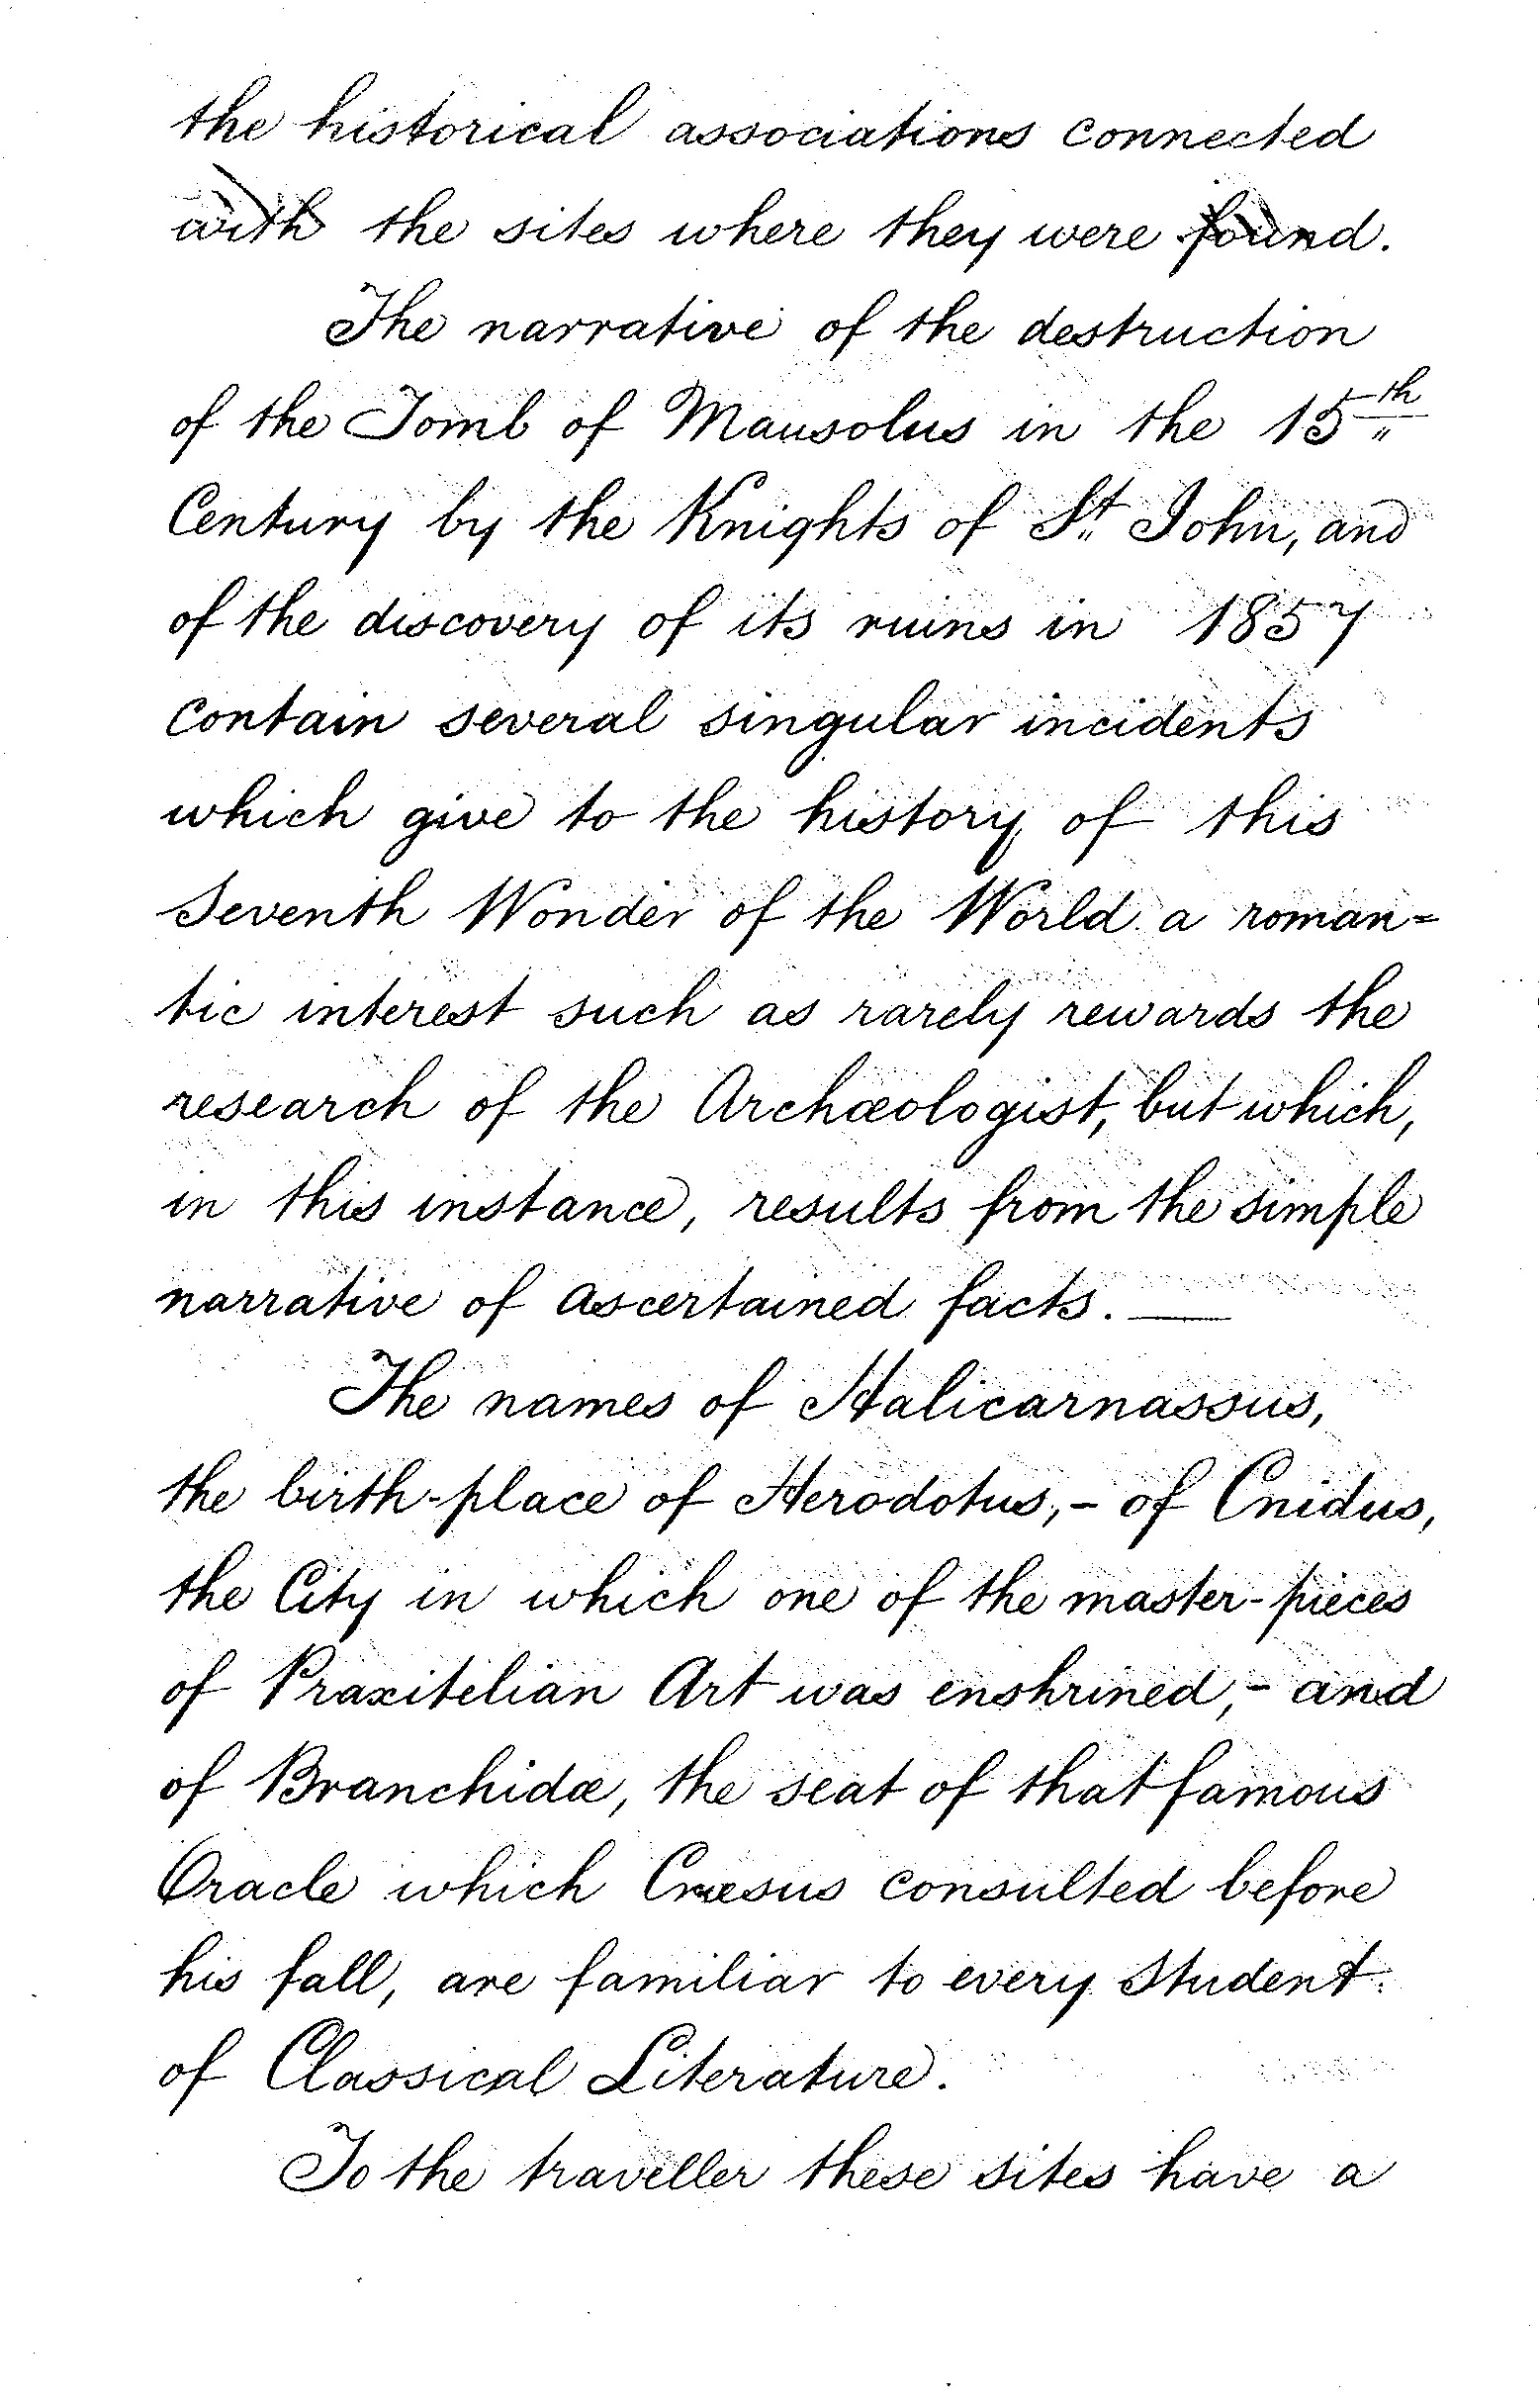 the historical associations connected
with the sites where they were found.
The narrative of the destruction
of the Tomb of Mausolus in the 15th
Century by the Knights of St. John, and
of the discovery of its ruins in 1857
contain several singular incidents
which give to the history of this
Seventh Wonder of the World a roman=
tic interest such as rarely rewards the
research of the Archæologist, but which,
in this instance, results from the simple
narrative of ascertained facts. —
The names of Halicarnassus,
the birth-place of Herodotus, - of Cnidus,
the City in which one of the master-pieces
of Praxitelian Art was enshrined, - and
of Branchidæ, the seat of that famous
Oracle which Crœsus consulted before
his fall, are familiar to every Student
of Classical Literature.
To the traveller these sites have a